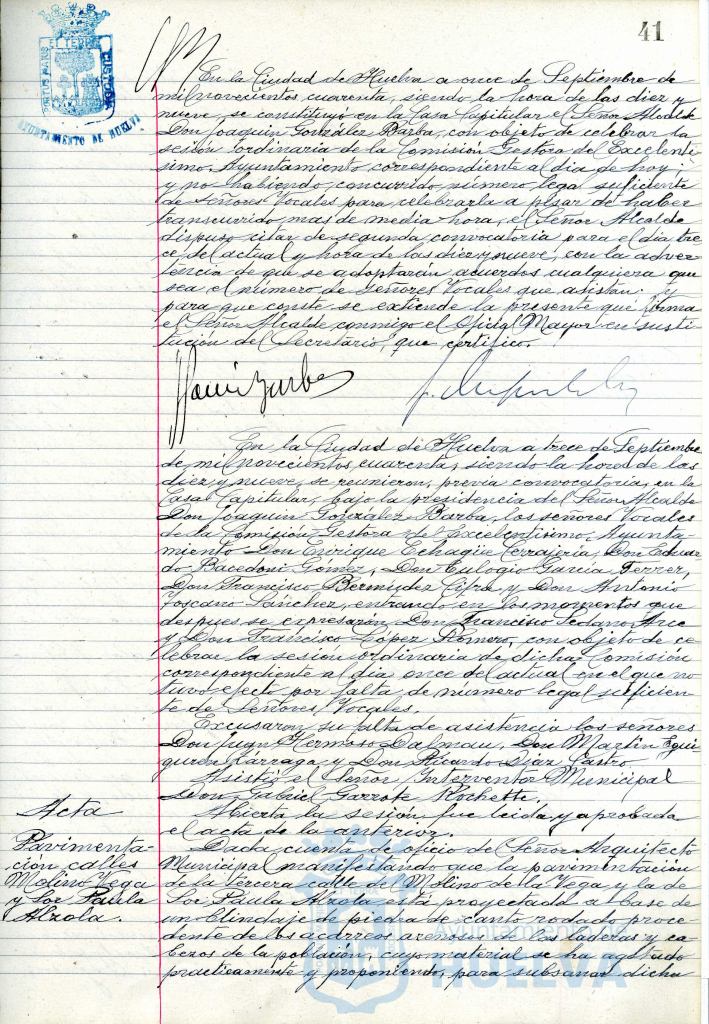 41
PORTUS MARIS ET TERRÆ CUSTODIA
AYUNTAMIENTO DE HUELVA
En la Ciudad de Huelva a once de Septiembre de
mil novecientos cuarenta, siendo la hora de las diez y
nueve, se constituyó en la Casa Capitular el Señor Alcalde
Don Joaquín González Barba, con objeto de celebrar la
sesión ordinaria de la Comisión Gestora del Excelentí-
simo Ayuntamiento correspondiente al dia de hoy
y no habiendo concurrido número legal suficiente
de Señores Vocales para celebrarla a pesar de haber
transcurrido mas de media hora, el Señor Alcalde
dispuso citar de segunda convocatoria para el día tre-
ce del actual y hora de las diez y nueve, con la adver-
tencia de que se adoptarán acuerdos cualquiera que
sea el número de Señores Vocales que asistan. Y
para que conste se extiende la presente que firma
el Señor Alcalde conmigo el Oficial Mayor en susti-
tución del Secretario, que certifico.
En la Ciudad de Huelva a trece de Septiembre
de mil novecientos cuarenta, siendo la hora de las
diez y nueve, se reunieron, previa convocatoria, en la
Casa Capitular, bajo la presidencia del Señor Alcalde
Don Joaquín González Barba, los señores Vocales
de la Comisión Gestora del Excelentísimo Ayunta-
miento Don Enrique Echagüe Cerrajería, Don Eduar-
do Bacedoni Gómez, Don Eulogio García Ferrer,
Don Francisco Bermúdez Cifra y Don Antonio
Toscano Sánchez, entrando en los momentos que
despues se expresarán Don Francisco Scolano Arce
y Don Francisco López Romero, con objeto de ce-
lebrar la sesión ordinaria de dicha Comisión
correspondiente al día once del actual en el que no
tuvo efecto por falta de número legal suficien-
te de Señores Vocales.
Excusaron su falta de asistencia los señores
Don Juan Hermoso Dalmau, Don Martín Egui-
guren Larraga y Don Ricardo Díaz Castro.
Asistió el Señor Interventor Municipal
Don Gabriel Garrote Rochette.
Acta
Abierta la sesión, fue leida y aprobada
el acta de la anterior.
Pavimenta-
ción calles
Molino Vega
y Sor Paula
Alzola.
Dada cuenta de oficio del Señor Arquitecto
Municipal manifestando que la pavimentación
de la tercera calle del Molino de la Vega y la de
Sor Paula Alzola está proyectada a base de
un blindaje de piedra de canto rodado proce-
dente de los acarreos arenosos de las laderas y ca-
bezos de la población, cuyo material se ha agotado
practicamente y proponiendo, para subsanar dicha
Ayuntamiento de
HUELVA